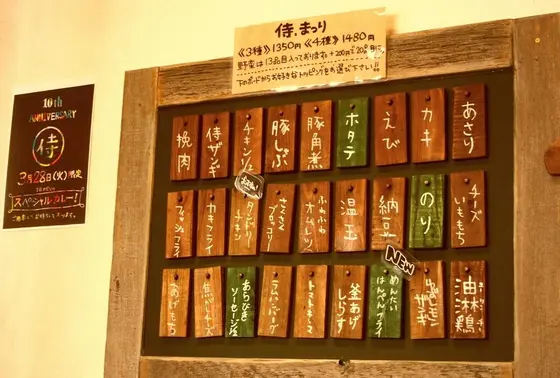 侍.まつり
《3種》1350円《4種》1480円
野菜は13品目入っております。+200円で20品目に
下のボードからお好きなトッピングをお選び下さい!!
10th
ANNIVERSARY
侍
3月28日(火)限定
スペシャルカレー!
挽肉
侍ザンギ
チキン
豚しゃぶ
豚角煮
ホタテ
えび
カキ
あさり
フィッシュフライ
カキフライ
タンドリーチキン
さくさくブロッコリー
ふわふわオムレツ
温玉
納豆
のり
チーズいももち
NEW
あげもち
焦がしチーズ
あらびきソーセージ
ラムハンバーグ
トマトキーマ
釜あげしらす
めんたいはんぺんフライ
ザンギ
油淋鶏